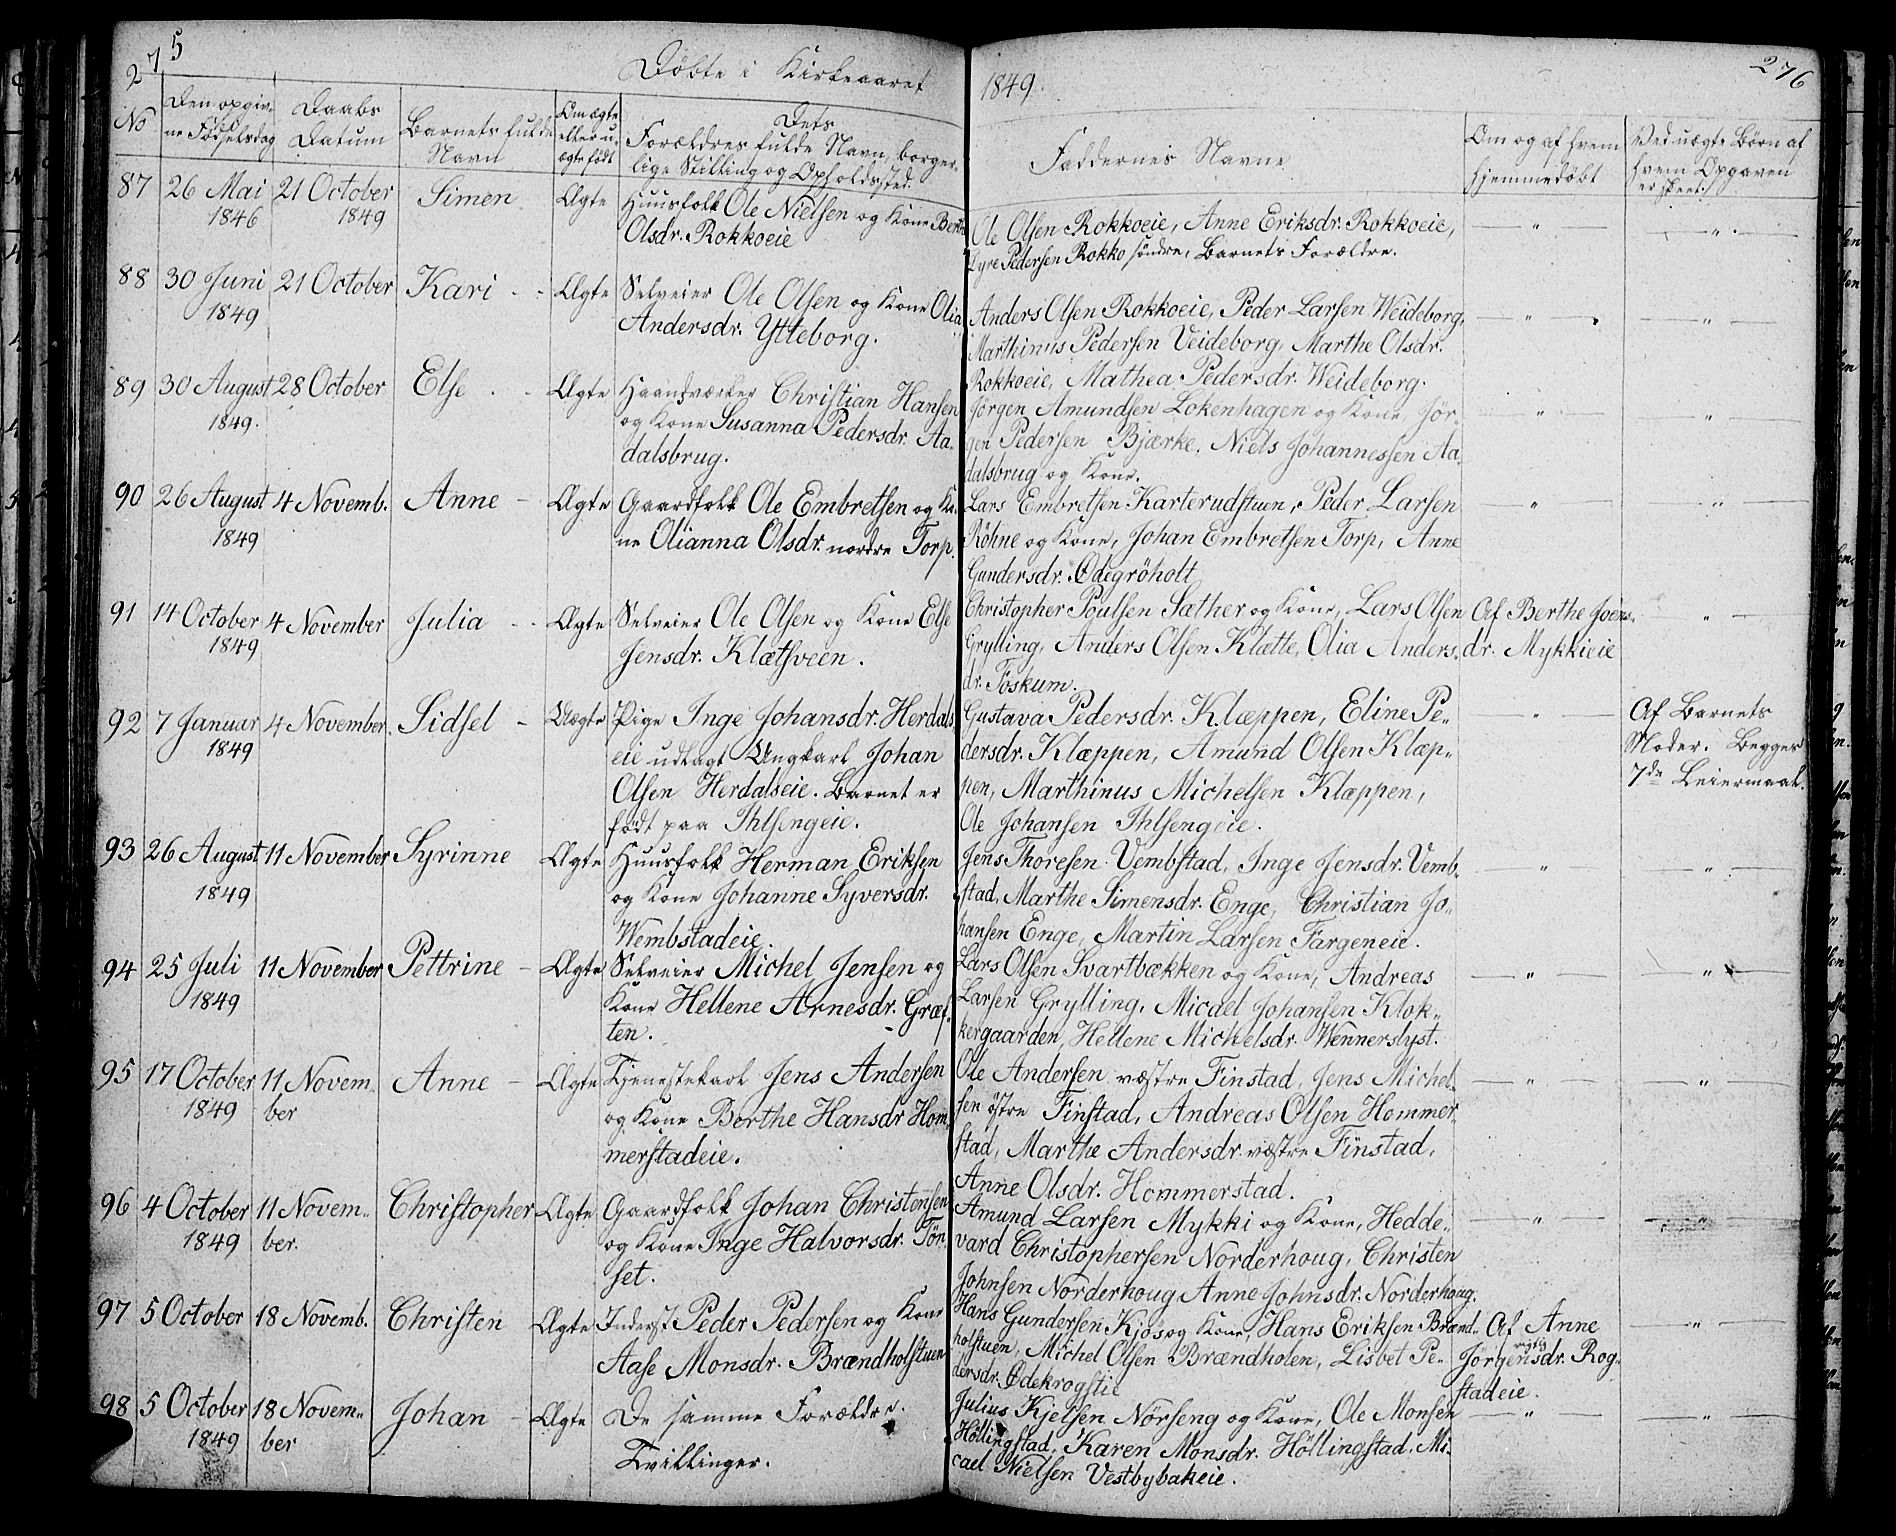 275
Døbte i Kirkeaaret
No
Den opgiv-
ne Fødselsdag
Daabs
Datum
Barnets fulde
Navn
Om ægte
eller u-
ægte født
Dets
Forældres fulde Navn, borger-
lige Stilling og Opholdssted.
87
26 Mai
1846
21 October
1849
Simen
Ægte
Huusfolk Ole Nielsen og Kone Berthe
Olsdr. Rokkoeie
88
30 Juni
1849
21 October
Kari
Ægte
Selveier Ole Olsen og Kone Olia
Andersdr. Ytteborg.
89
30 August
1849.
28 October
Else
Ægte
Haandværker Christian Hansen
og Kone Susanna Pedersdr. Aa-
dalsbrug.
90
26 August
1849
4 Novemb.
Anne
Ægte
Gaardfolk Ole Embretsen og Ko-
ne Olianna Olsdr. nordre Torp.
91
14 October
1849
4 November
Julia
Ægte
Selveier Ole Olsen og Kone Else
Jensdr. Klætsveen.
92
7 Januar
1849
4 November.
Sidsel
Uægte
Pige Inge Johansdr. Herdals
eie udlagt Ungkarl Johan
Olsen Herdalseie. Barnet er
født paa Ihlsengeie.
93
26 August
1849
11 November
Syrinne
Ægte
Huusfolk Herman Eriksen
og Kone Johanne Syversdr.
Wembstadeie.
94
25 Juli
1849
11 November
Pettrine
Ægte
Selveier Michel Jensen og
Kone Hellene Arnesdr. Græf-
ten.
95
17 October
1849
11 Novem-
ber
Anne
Ægte
Tjenestekarl Jens Andersen
og Kone Berthe Hansdr Hom-
merstadeie.
96
4 October
1849
11 Novem-
ber.
Christopher
Ægte
Gaardfolk Johan Christensen
og Kone Inge Halvorsdr. Tøn-
set.
97
5 October
18 Novemb.
Christen
Ægte
Inderst Peder Pedersen og Kone
Aase Monsdr. Brændholstuen
98
5 October
1849
18 Novem-
ber
Johan
Ægte
De samme Forældre.
Tvillinger.
1849.
276
Faddernes Navne
Om og af hvem
hjemmedøbt
Ved uægte Børn af
hvem Opgaven
er skeet.
Ole Olsen Rokkoeie, Anne Eriksdr. Rokkoeie,
Syre Pedersen Rokko søndre, Barnets Forældre.
Anders Olsen Rokkoeie, Peder Larsen Weideborg,
Marthinus Pedersen Veideborg, Marthe Olsdr.
Rokkoeie, Mathea Pedersdr. Weideborg.
Jörgen Amundsen Lokenhagen og Kone, Jör-
gen Pedersen Bjærke, Niels Johannessen Aa-
dalsbrug og Kone.
Lars Embretsen Karterudstuen, Peder Larsen
Röhne og Kone, Johan Embretsen Torp, Anne
Gundersdr. Ödegröholt
Christopher Poulsen Sæther og Kone, Lars Olsen
Grylling, Anders Olsen Klætte, Olia Anders-
dr. Foskum.
Af Berthe Joens-
dr. Mykkieie
Gustava Pedersdr. Klæppen, Eline Pe-
dersdr. Klæppen, Amund Olsen Klæp-
pen, Marthinus Michelsen Klæppen,
Ole Johansen Ihlsengeie.
Af Barnets
Moder. Begges
7de Leiermaal.
Jens Thoresen Vembstad, Inge Jensdr. Vemb-
stad, Marthe Simensdr. Enge, Christian Jo-
hansen Enge, Martin Larsen Fargeneie.
Lars Olsen Svartbækken og Kone, Andreas
Larsen Grylling, Micael Johansen Klok-
kergaarden, Hellene Michelsdr. Wennerslyst.
Ole Andersen væstre Finstad, Jens Michel-
sen östre Finstad, Andreas Olsen Hommer-
stad, Marthe Andersdr væstre Finstad,
Anne Olsdr. Hommerstad.
Amund Larsen Mykki og Kone, Hedde-
vard Christophersen Norderhoug, Christen
Johnsen Norderhoug Anne Johnsdr. Norderhoug.
Hans Gundersen Kjös og Kone, Hans Eriksen Brænd-
holstuen, Michel Olsen Brændholen, Lisbet Pe-
dersdr. Ödekrogstie
Af Anne
Jörgensdr. Rog-
stadeie.
Julius Kjelsen Nörseng og Kone, Ole Monsen
Höllingstad, Karen Monsdr. Höllingstad, Mi-
cael Nielsen Vestbybakeie.